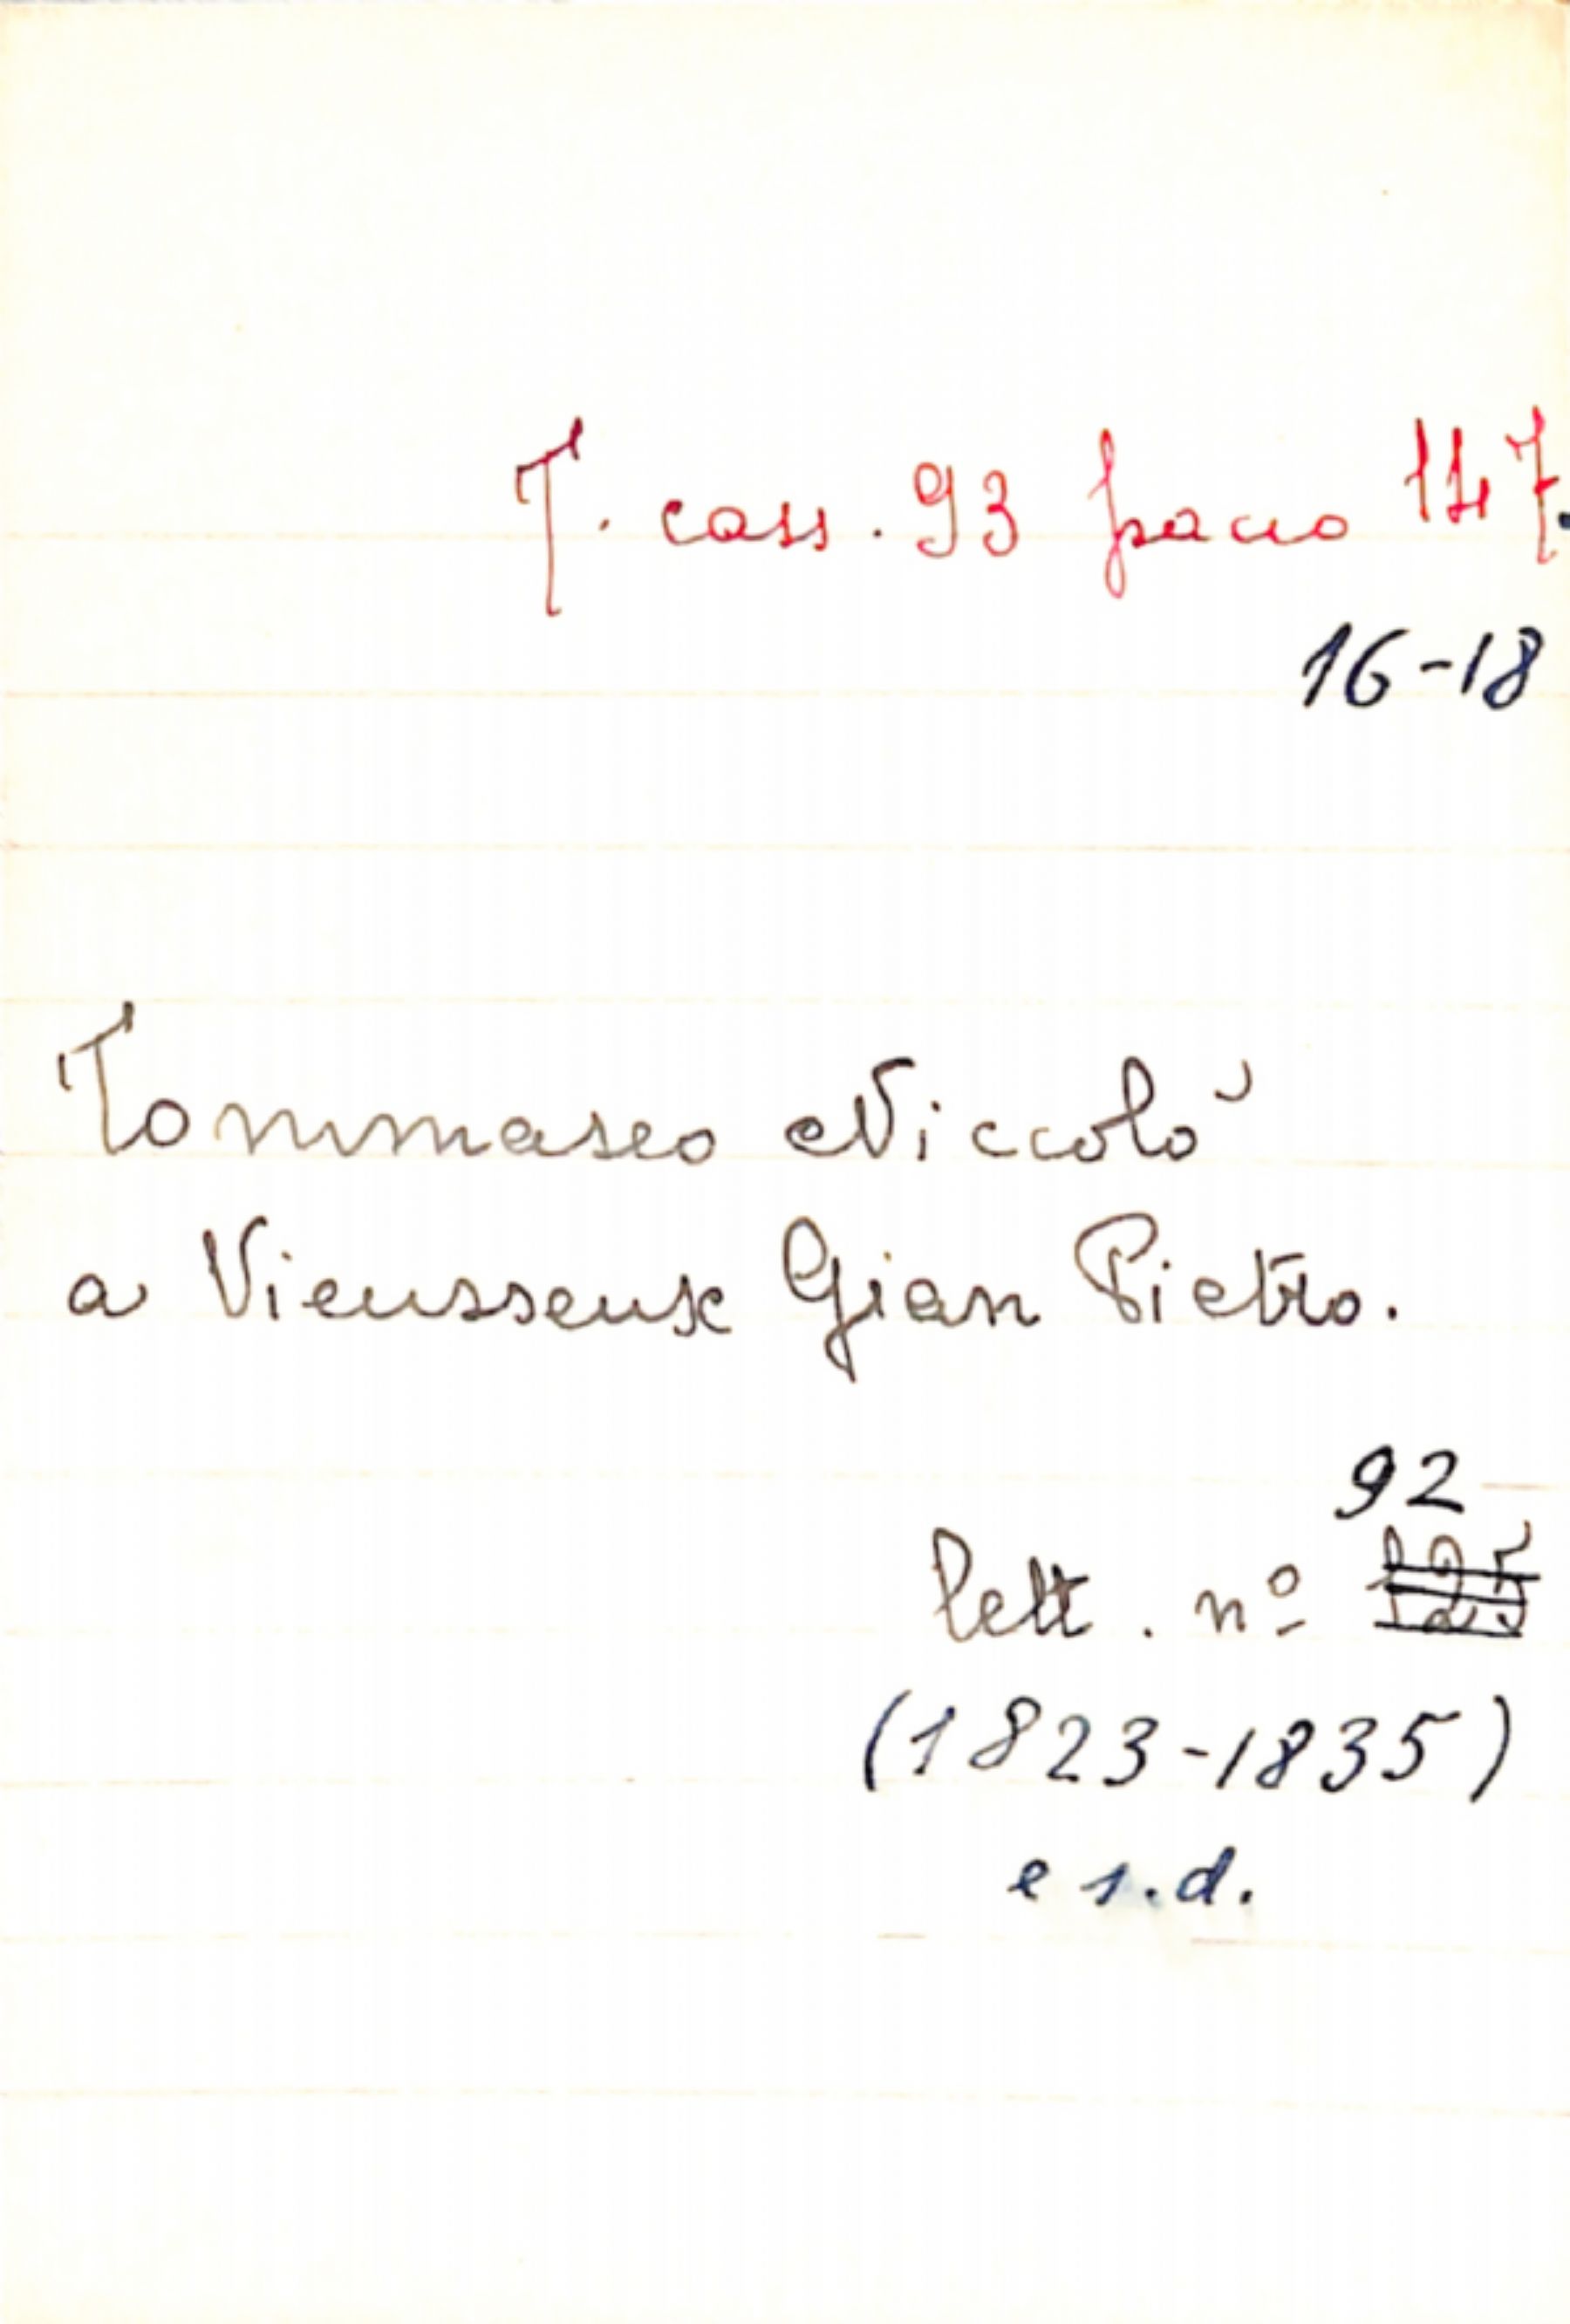 T. cass. 93 pacco 147.
16-18
Tommaseo Niccolò
a Vieusseux Gian Pietro.
92
lett. nº
(1823-1835)
e s.d.